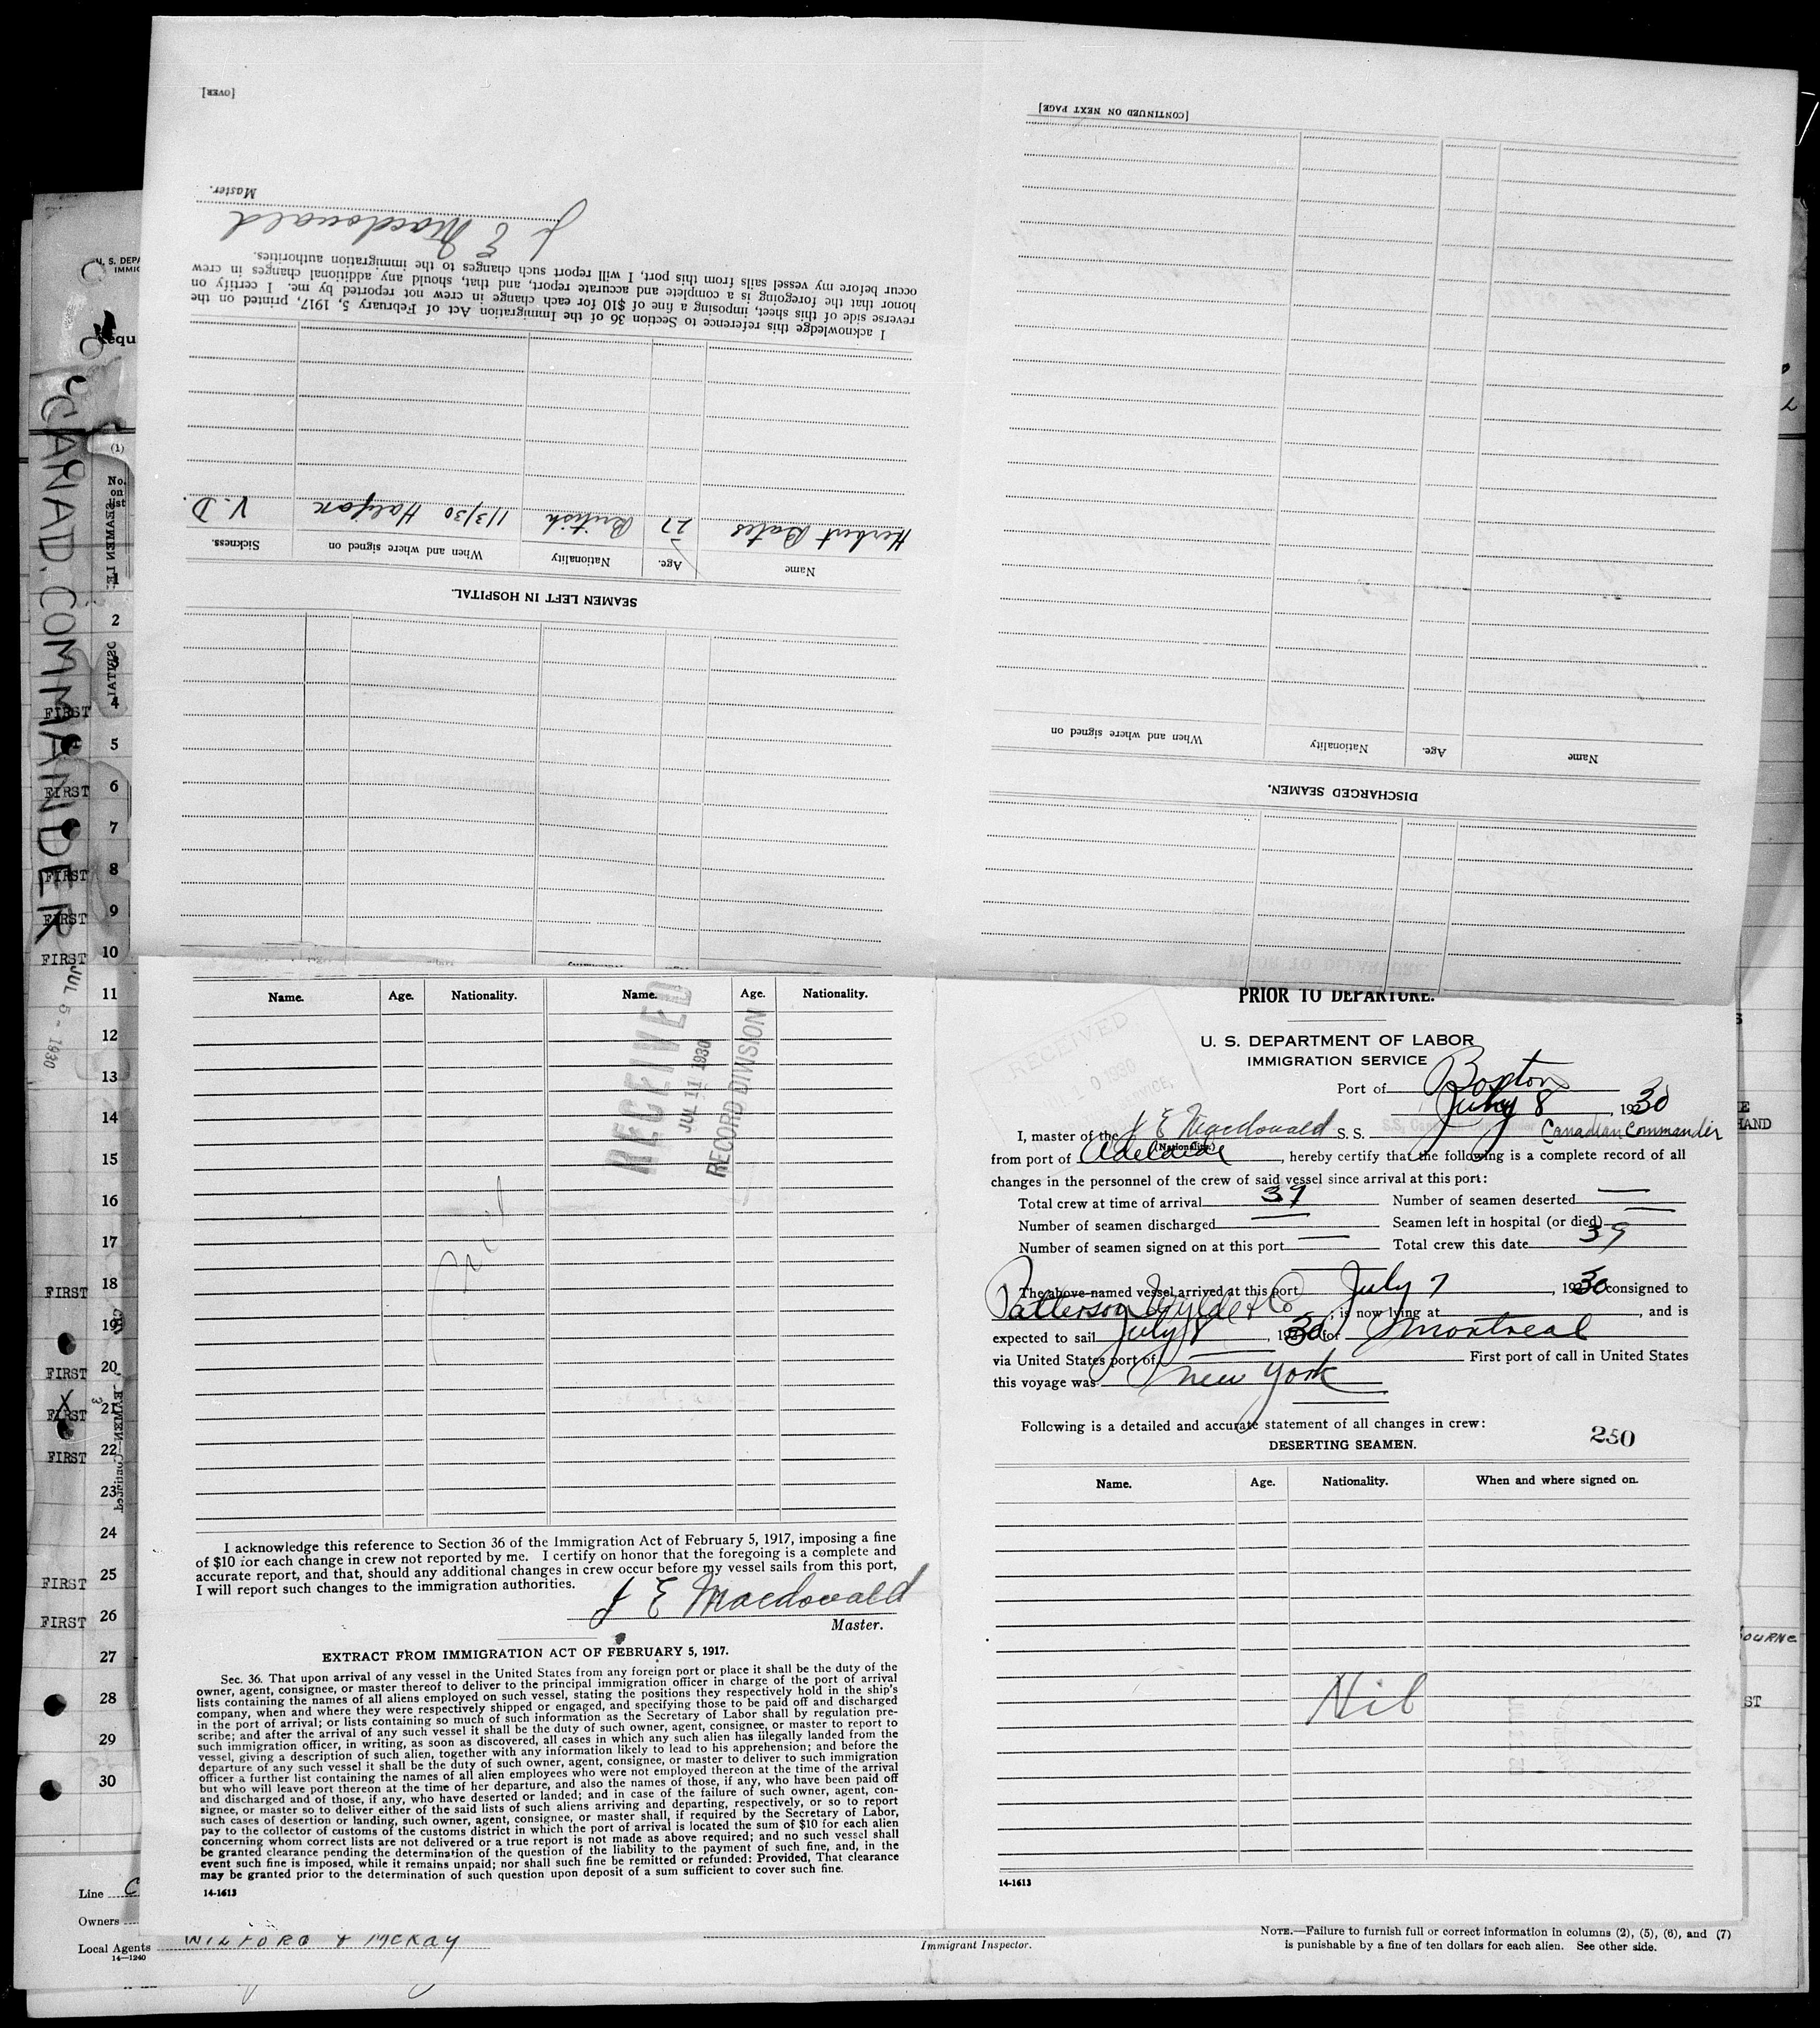 [OVER]
Master.
J E Macdonald
I acknowledge this reference to Section 36 of the Immigration Act of February 5, 1917, printed on the
reverse side of this sheet, imposing a fine of $10 for each change in crew not reported by me. I certify on
honor that the foregoing is a complete and accurate report, and that, should any additional changes in crew
occur before my vessel sails from this port, I will report such changes to the immigration authorities.
SEAMEN LEFT IN HOSPITAL.
Name Age. Nationality When and where signed on Sickness.
Herbert Bates 27 British 11/3/30 Halifax V.D.
[CONTINUED ON NEXT PAGE]
DISCHARGED SEAMEN.
Name Age. Nationality When and where signed on
U. S. DEPA
IMMIG
equ
CANAD. COMMANDER
JUL 5 - 1930
(1)
No.
on
list
1
2
3
FIRST 4
5
FIRST 6
7
FIRST 8
FIRST 9
FIRST 10
11
12
13
14
15
16
17
FIRST 18
19
FIRST 20
X FIRST 21
FIRST 22
23
24
FIRST 25
FIRST 26
27
28
29
30
Name. Age. Nationality. Name. Age. Nationality.
RECEIVED
JUL 11 1930
RECORD DIVISION
Nil
I acknowledge this reference to Section 36 of the Immigration Act of February 5, 1917, imposing a fine
of $10 for each change in crew not reported by me. I certify on honor that the foregoing is a complete and
accurate report, and that, should any additional changes in crew occur before my vessel sails from this port,
I will report such changes to the immigration authorities.
J E Macdonald
Master.
EXTRACT FROM IMMIGRATION ACT OF FEBRUARY 5, 1917.
Sec. 36. That upon arrival of any vessel in the United States from any foreign port or place it shall be the duty of the
owner, agent, consignee, or master thereof to deliver to the principal immigration officer in charge of the port of arrival
lists containing the names of all aliens employed on such vessel, stating the positions they respectively hold in the ship's
company, when and where they were respectively shipped or engaged, and specifying those to be paid off and discharged
in the port of arrival; or lists containing so much of such information as the Secretary of Labor shall by regulation pre-
scribe; and after the arrival of any such vessel it shall be the duty of such owner, agent, consignee, or master to report to
such immigration officer, in writing, as soon as discovered, all cases in which any such alien has illegally landed from the
vessel, giving a description of such alien, together with any information likely to lead to his apprehension; and before the
departure of any such vessel it shall be the duty of such owner, agent, consignee, or master to deliver to such immigration
officer a further list containing the names of all alien employees who were not employed thereon at the time of the arrival
but who will leave port thereon at the time of her departure, and also the names of those, if any, who have been paid off
and discharged and of those, if any, who have deserted or landed; and in case of the failure of such owner, agent, con-
signee, or master so to deliver either of the said lists of such aliens arriving and departing, respectively, or so to report
such cases of desertion or landing, such owner, agent, consignee, or master shall, if required by the Secretary of Labor,
pay to the collector of customs of the customs district in which the port of arrival is located the sum of $10 for each alien
concerning whom correct lists are not delivered or a true report is not made as above required; and no such vessel shall
be granted clearance pending the determination of the question of the liability to the payment of such fine, and, in the
event such fine is imposed, while it remains unpaid; nor shall such fine be remitted or refunded: Provided, That clearance
may be granted prior to the determination of such question upon deposit of a sum sufficient to cover such fine.
14-1613
PRIOR TO DEPARTURE.
U. S. DEPARTMENT OF LABOR
IMMIGRATION SERVICE
RECEIVED
Port of Boston
July 8, 1930
I, master of the J E Macdonald S. S. Canadian Commander
(Nationality.)
from port of Adelaide, hereby certify that the following is a complete record of all
changes in the personnel of the crew of said vessel since arrival at this port:
Total crew at time of arrival 39 Number of seamen deserted —
Number of seamen discharged — Seamen left in hospital (or died) —
Number of seamen signed on at this port — Total crew this date 39
The above-named vessel arrived at this port July 7, 1930 consigned to
Patterson Wylde & Co, is now lying at , and is
expected to sail July 8, 1930 for Montreal
via United States port of — First port of call in United States
this voyage was New York
Following is a detailed and accurate statement of all changes in crew:
250
DESERTING SEAMEN.
Name. Age. Nationality. When and where signed on.
Nil
14-1613
HAND
OURNE
ST
Line C
Owners
Local Agents WILFORD & McKAY
14-1240
Immigrant Inspector.
NOTE.—Failure to furnish full or correct information in columns (2), (5), (6), and (7)
is punishable by a fine of ten dollars for each alien. See other side.